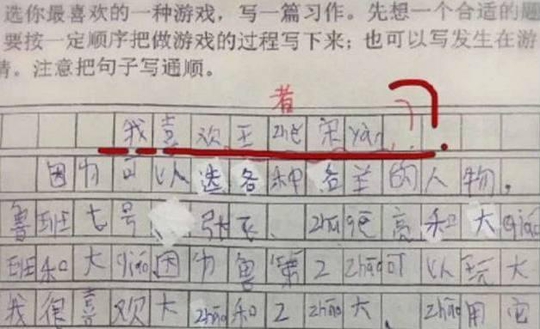 选你最喜欢的一种游戏，写一篇习作。先想一个合适的题
要按一定顺序把做游戏的过程写下来；也可以写发生在游
情。注意把句子写通顺。
者
我喜欢王zhě荣yào
因为可以选各种各羊的人物。
鲁班七号、张飞、zhūgě亮和大qiáo
班和大qiáo因为鲁第2zhāo可以玩大
我很喜欢大zhāo和2zhāo大zhāo用它